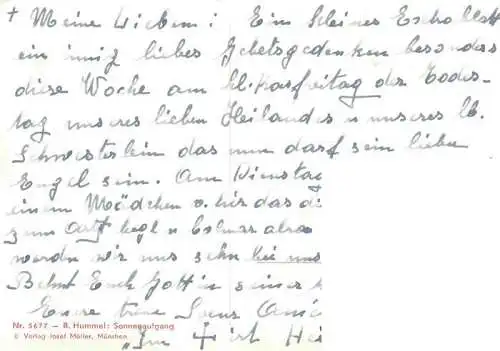 + Meine Lieben! Ein kleines Echo
ein innig liebes Gebetsgedenken besonders
diese Woche am hl. Karfreitag der Todes-
tag unseres lieben Heilandes u. unseres lb.
Schwesterlein das nun darf sein lieber
Engel sein. Am Dienstag
einem Mädchen v. hir das
zum Arzt
werden wir uns sehn bei uns
Behüt Euch Gott in seiner
Eure treue
"Im + ist Hei
Nr. 5677 — B. Hummel: Sonnenaufgang
© Verlag Josef Müller, München